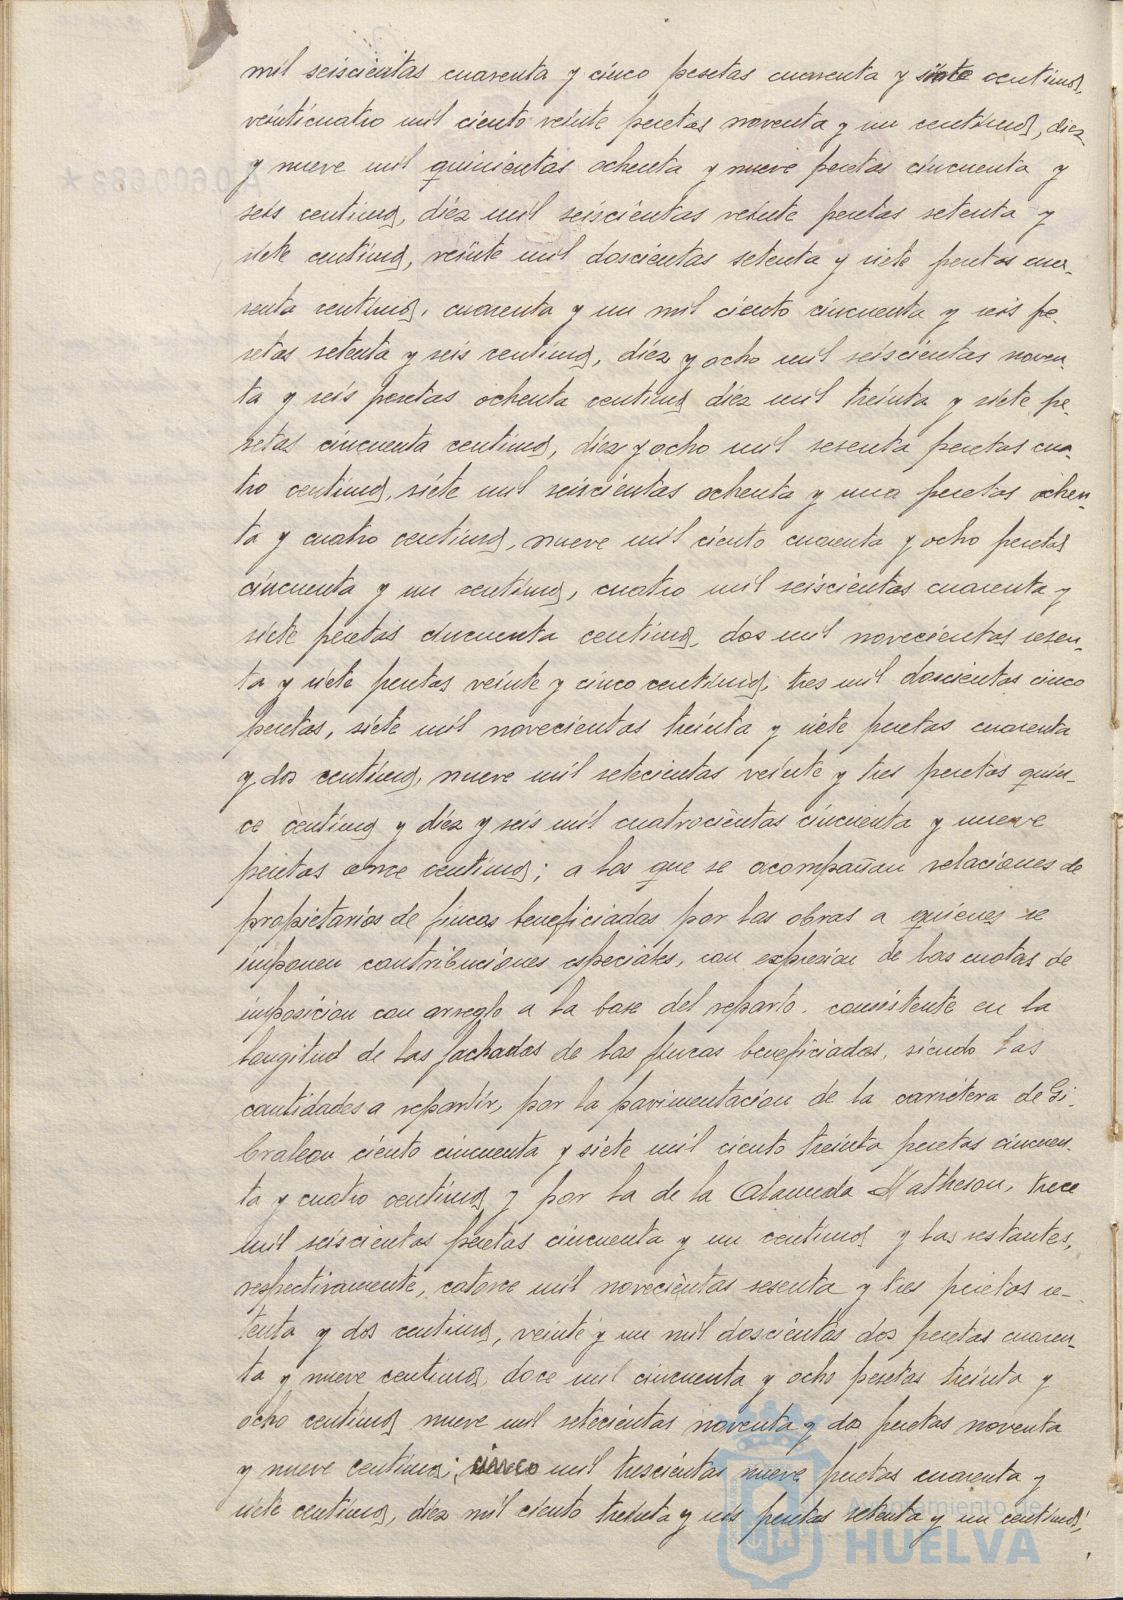 mil seiscientas cuarenta y cinco pesetas cuarenta y siete centimos,
veinticuatro mil ciento veinte pesetas noventa y un centimos, diez
y nueve mil quinientas ochenta y nueve pesetas cincuenta y
seis centimos, diez mil seiscientas veinte pesetas setenta y
siete centimos, veinte mil doscientas setenta y siete pesetas cua-
renta centimos, cuarenta y un mil ciento cincuenta y seis pe-
setas setenta y seis centimos, diez y ocho mil seiscientas noven-
ta y seis pesetas ochenta centimos diez mil treinta y siete pe-
setas cincuenta centimos, diez y ocho mil sesenta pesetas cua-
tro centimos, siete mil seiscientas ochenta y una pesetas ochen-
ta y cuatro centimos, nueve mil ciento cuarenta y ocho pesetas
cincuenta y un centimos, cuatro mil seiscientas cuarenta y
siete pesetas cincuenta centimos, dos mil novecientas sesen-
ta y siete pesetas veinte y cinco centimos, tres mil doscientas cinco
pesetas, siete mil novecientas treinta y siete pesetas cuarenta
y dos centimos, nueve mil setecientas veinte y tres pesetas quin-
ce centimos y diez y seis mil cuatrocientas cincuenta y nueve
pesetas once centimos; a las que se acompañan relaciones de
propietarios de fincas beneficiadas por las obras a quienes se
imponen contribuciones especiales, con expresion de las cuotas de
imposicion con arreglo a la base del reparto, consistente en la
longitud de las fachadas de las fincas beneficiadas, siendo las
cantidades a repartir, por la pavimentacion de la carretera de Gi-
braleon ciento cincuenta y siete mil ciento treinta pesetas cincuen-
ta y cuatro centimos y por la de la Alameda Matheson, trece
mil seiscientas pesetas cincuenta y un centimos y las restantes,
respectivamente, catorce mil novecientas sesenta y tres pesetas se-
tenta y dos centimos, veinte y un mil doscientas dos pesetas cuaren-
ta y nueve centimos, doce mil cincuenta y ocho pesetas treinta y
ocho centimos nueve mil setecientas noventa y dos pesetas noventa
y nueve centimos; cinco mil trescientas nueve pesetas cuarenta y
siete centimos, diez mil ciento treinta y seis pesetas setenta y un centimos,
Ayuntamiento de
HUELVA